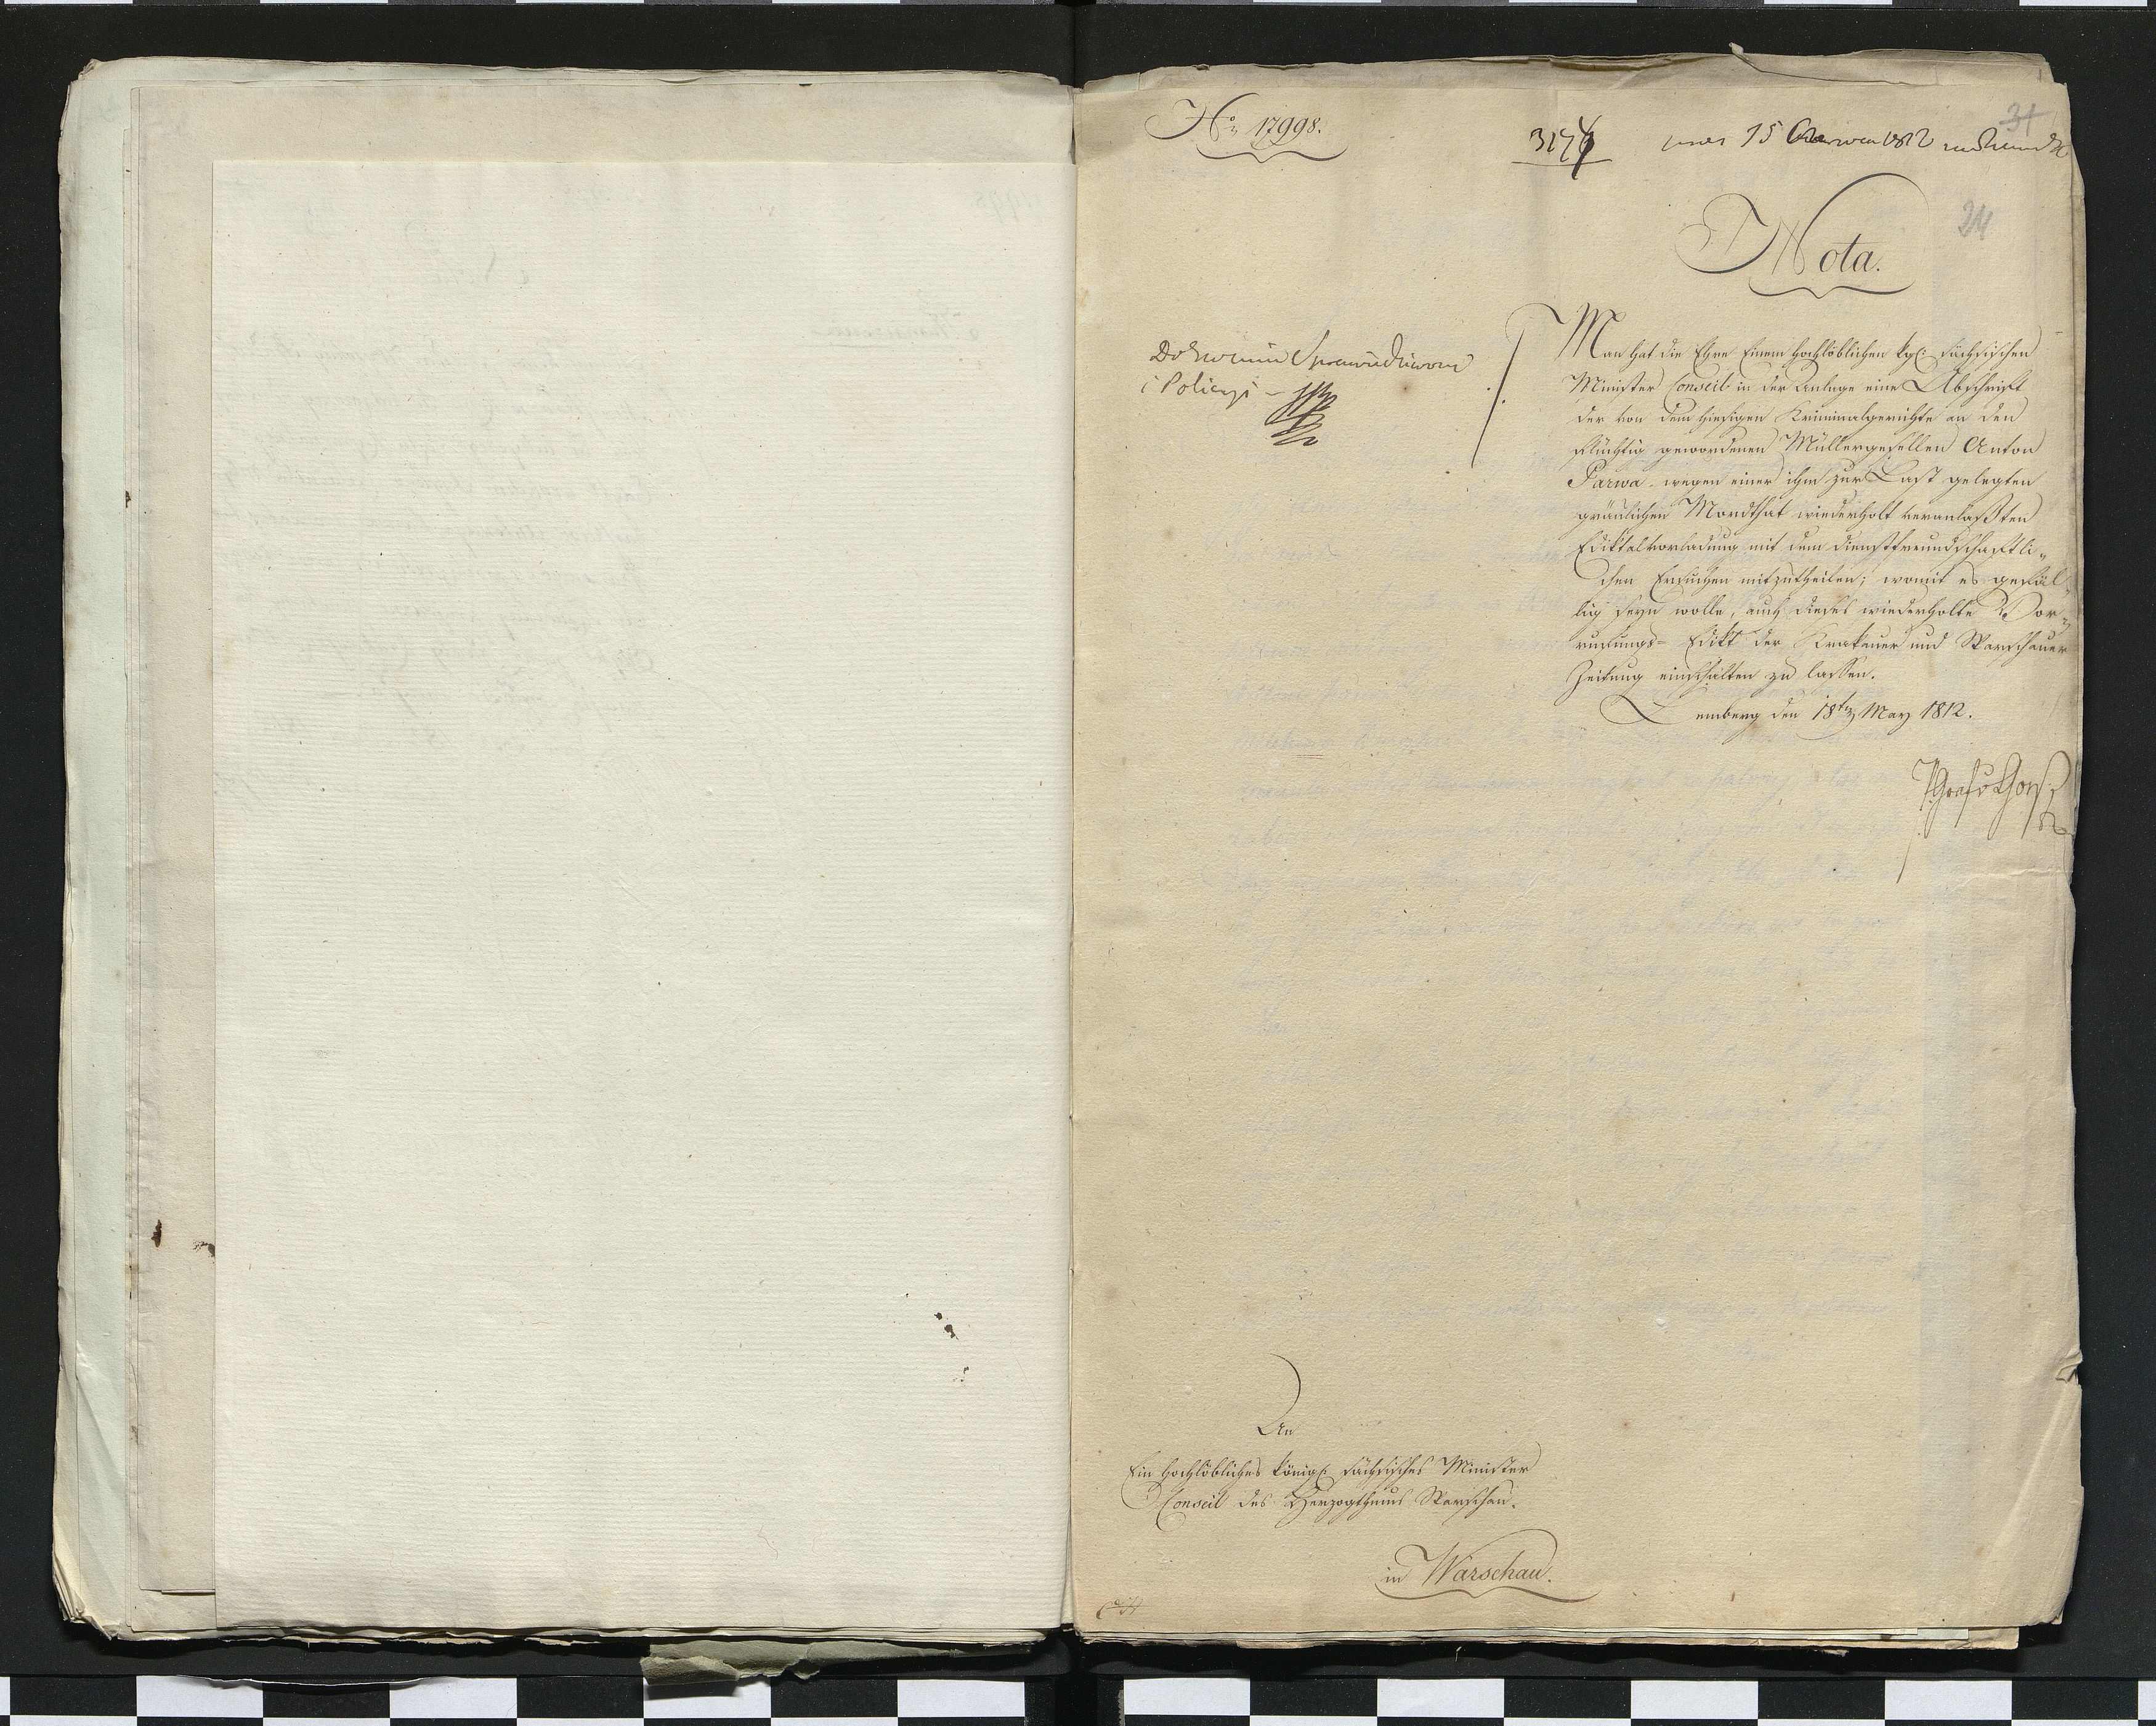 No 17998.
31
15 Czerwca 1812
24
Nota.
Do
i Policyi
Man hat die Ehre Einem Hochlöblichen kgl: sächsischen
Minister Conseil in der Anlage eine Abschrift
der von dem hiesigen Kriminalgerichte an den
flüchtig gewordenen Müllergesellen Anton
Parwa wegen einer ihm zur Last gelegten
gräulichen Mordthat wiederholt veranlaßten
Ediktalvorladung mit dem dienstfreundschaftli-
chen Ersuchen mitzutheilen; womit es gefäl-
lig seyn wolle, auch dieses wiederholte Vor-
rufungs- Edikt der Krakauer und Warschauer
Zeitung einschalten zu lassen.
Lemberg den 18ten May 1812.
An
Ein Hochlöbliches königl: sächsisches Minister
Conseil des Herzogthums Warschau.
in Warschau.